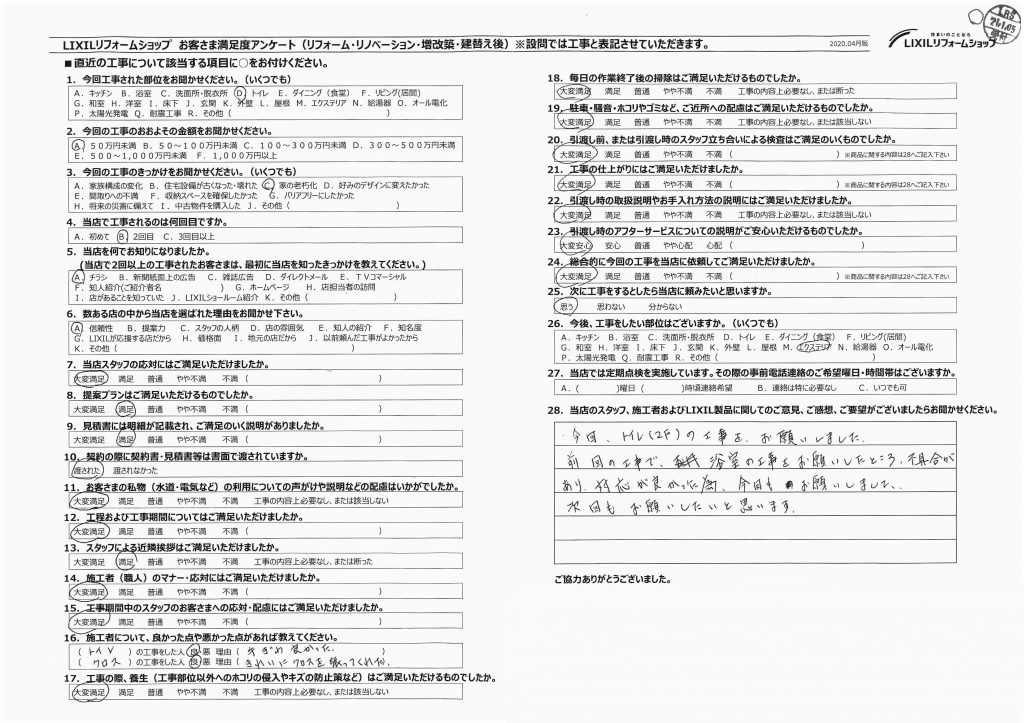 LIXILリフォームショップ お客さま満足度アンケート（リフォーム・リノベーション・増改築・建替え後）※設問では工事と表記させていただきます。
2020.04月版
住まいのことなら
LIXILリフォームショップ
■直近の工事について該当する項目に○をお付けください。
1．今回工事された部位をお聞かせください。（いくつでも）
A．キッチン B．浴室 C．洗面所・脱衣所 D．トイレ E．ダイニング（食堂） F．リビング(居間)
G．和室 H．洋室 I．床下 J．玄関 K．外壁 L．屋根 M．エクステリア N．給湯器 O．オール電化
P．太陽光発電 Q．耐震工事 R．その他（ ）
2．今回の工事のおおよその金額をお聞かせください。
A．50万円未満 B．50～100万円未満 C．100～300万円未満 D．300～500万円未満
E．500～1,000万円未満 F．1,000万円以上
3．今回の工事のきっかけをお聞かせください。（いくつでも）
A．家族構成の変化 B．住宅設備が古くなった・壊れた C．家の老朽化 D．好みのデザインに変えたかった
E．間取りへの不満 F．収納スペースを確保したかった G．バリアフリーにしたかった
H．将来の災害に備えて I．中古物件を購入した J．その他（ ）
4．当店で工事されるのは何回目ですか。
A．初めて B．2回目 C．3回目以上
5．当店を何でお知りになりましたか。
（当店で2回以上の工事されたお客さまは、最初に当店を知ったきっかけを教えてください。）
A．チラシ B．新聞紙面上の広告 C．雑誌広告 D．ダイレクトメール E．TVコマーシャル
F．知人紹介(ご紹介者名 ) G．ホームページ H．店担当者の訪問
I．店があることを知っていた J．LIXILショールーム紹介 K．その他（ ）
6．数ある店の中から当店を選ばれた理由をお聞かせ下さい。
A．信頼性 B．提案力 C．スタッフの人柄 D．店の雰囲気 E．知人の紹介 F．知名度
G．LIXILが応援する店だから H．価格面 I．地元の店だから J．以前頼んだ工事がよかったから
K．その他（ ）
7．当店スタッフの応対にはご満足いただけましたか。
大変満足 満足 普通 やや不満 不満（ ）
8．提案プランはご満足いただけるものでしたか。
大変満足 満足 普通 やや不満 不満（ ）
9．見積書には明細が記載され、ご満足のいく説明がありましたか。
大変満足 満足 普通 やや不満 不満（ ）
10．契約の際に契約書・見積書等は書面で渡されていますか。
渡された 渡されなかった
11．お客さまの私物（水道・電気など）の利用についての声がけや説明などの配慮はいかがでしたか。
大変満足 満足 普通 やや不満 不満 工事の内容上必要なし、または該当しない
12．工程および工事期間についてはご満足いただけましたか。
大変満足 満足 普通 やや不満 不満（ ）
13．スタッフによる近隣挨拶はご満足いただけましたか。
大変満足 満足 普通 やや不満 不満 工事の内容上必要なし、または断った
14．施工者（職人）のマナー・応対にはご満足いただけましたか。
大変満足 満足 普通 やや不満 不満（ ）
15．工事期間中のスタッフのお客さまへの応対・配慮にはご満足いただけましたか。
大変満足 満足 普通 やや不満 不満（ ）
16．施工者について、良かった点や悪かった点があれば教えてください。
（ トイレ ）の工事をした人 良・悪 理由（ 手ぎわ 良かった。 ）
（ クロス ）の工事をした人 良・悪 理由（ きれいにクロスを張ってくれた。
17．工事の際、養生（工事部位以外へのホコリの侵入やキズの防止策など）はご満足いただけるものでしたか。
大変満足 満足 普通 やや不満 不満 工事の内容上必要なし、または該当しない
18．毎日の作業終了後の掃除はご満足いただけるものでしたか。
大変満足 満足 普通 やや不満 不満 工事の内容上必要なし、または断った
19．駐車・騒音・ホコリやゴミなど、ご近所への配慮はご満足いただけるものでしたか。
大変満足 満足 普通 やや不満 不満 工事の内容上必要なし、または該当しない
20．引渡し前、または引渡し時のスタッフ立ち合いによる検査はご満足のいくものでしたか。
大変満足 満足 普通 やや不満 不満（ ）※商品に関する内容は28へご記入下さい
21．工事の仕上がりにはご満足いただけましたか。
大変満足 満足 普通 やや不満 不満（ ）※商品に関する内容は28へご記入下さい
22．引渡し時の取扱説明やお手入れ方法の説明にはご満足いただけましたか。
大変満足 満足 普通 やや不満 不満 工事の内容上必要なし、または該当しない
23．引渡し時のアフターサービスについての説明がご安心いただけるものでしたか。
大変安心 安心 普通 やや心配 心配（ ）
24．総合的に今回の工事を当店に依頼してご満足いただけましたか。
大変満足 満足 普通 やや不満 不満（ ）※商品に関する内容は28へご記入下さい
25．次に工事をするとしたら当店に頼みたいと思いますか。
思う 思わない 分からない
26．今後、工事をしたい部位はございますか。（いくつでも）
A．キッチン B．浴室 C．洗面所・脱衣所 D．トイレ E．ダイニング（食堂） F．リビング(居間)
G．和室 H．洋室 I．床下 J．玄関 K．外壁 L．屋根 M．エクステリア N．給湯器 O．オール電化
P．太陽光発電 Q．耐震工事 R．その他（ ）
27．当店では定期点検を実施しています。その際の事前電話連絡のご希望曜日・時間帯はございますか。
A．（ ）曜日（ ）時頃連絡希望 B．連絡は特に必要なし C．いつでも可
28．当店のスタッフ、施工者およびLIXIL製品に関してのご意見、ご感想、ご要望がございましたらお聞かせください。
・今回、トイレ(2F)の工事を、お願いしました。
前回の工事で、浴室の工事をお願いしたところ、不具合が
あり、対応が良かった為、今回もお願いしました。
次回もお願いしたいと思います。
ご協力ありがとうございました。